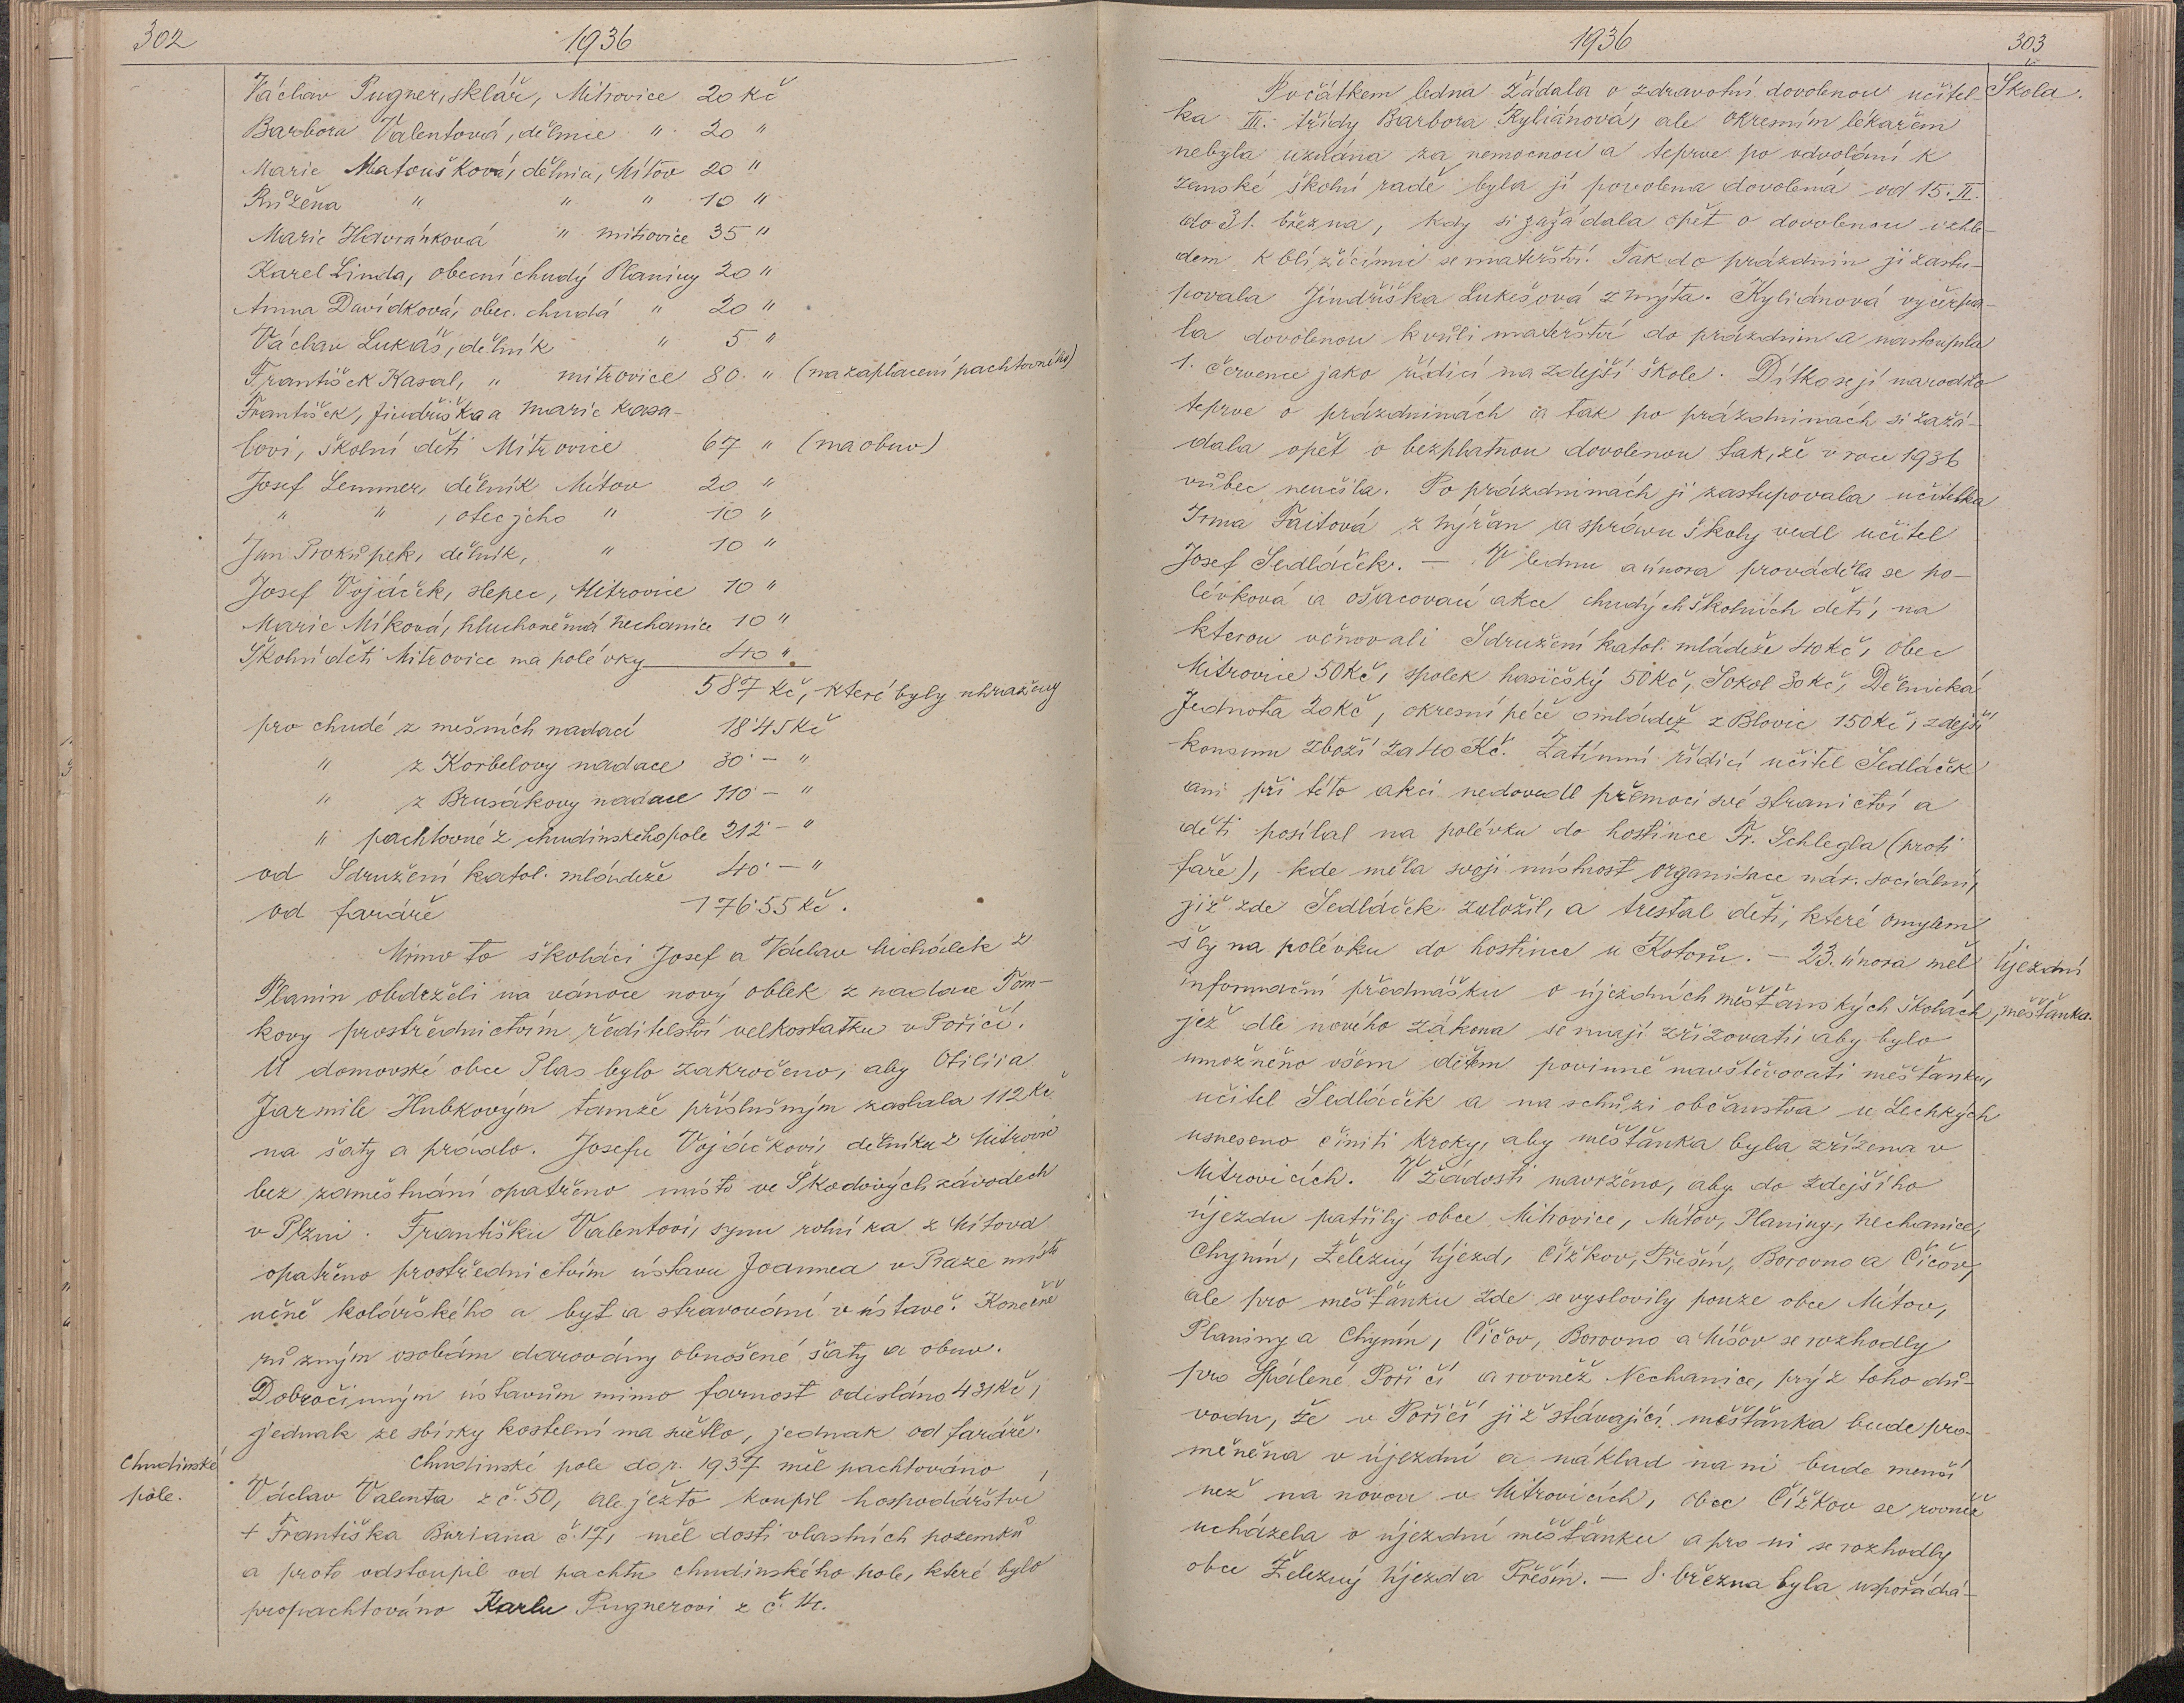 302
1936
Václav Pugner, sklář, Mitrovice 20 Kč
Barbora Valentová, dělnice " 20 "
Marie Matoušková, dělnice, Mítov 20 "
Růžena " " " 10 "
Marie Havránková " Mitrovice 35 "
Karel Linda, obecní chudý Planiny 20 "
Anna Davídková, obec. chudá " 20 "
Václav Lukáš, dělník " 5 "
František Kasal, " Mitrovice 80 " (na zaplacení pachtovného)
František, Jindřiška a Marie Kasa-
lovi, školní děti Mitrovice 67 " (na obuv)
Josef Lemmer, dělník Mítov 20 "
" " , otec jeho " 10 "
Jan Prokůpek, dělník, " 10 "
Josef Vojáček, slepec, Mitrovice 10 "
Marie Míková, hluchoněmá Nechanice 10 "
Školní děti Mitrovice na polévky 40 "
587 Kč, které byly uhrazeny
pro chudé z mešních nadací 18'45 Kč
" z Korbelovy nadace 30'- "
" z Brusákovy nadace 110'- "
" pachtovné z chudinského pole 212'- "
od Sdružení katol. mládeže 40'- "
od faráře 176'55 Kč.
Mimo to školáci Josef a Václav Michálek z
Planin obdrželi na vánoce nový oblek z nadace Tom-
kovy prostřednictvím ředitelství velkostatku v Poříčí.
U domovské obce Plas bylo zakročeno, aby Otilii a
Jarmile Hubkovým tamže příslušným zaslala 112 Kč
na šaty a prádlo. Josefu Vojáčkovi, dělníku z Mitrovic
bez zaměstnání opatřeno místo ve Škodových závodech
v Plzni. Františku Valentovi, synu rolníka z Mítova
opatřeno prostřednictvím ústavu Joannea v Praze místo
učně kolářského a byt a stravování v ústavě. Konečně
různým osobám darovány obnošené šaty a obuv.
Dobročinným ústavům mimo farnost odesláno 431 Kč,
jednak ze sbírky kostelní na světlo, jednak od faráře.
Chudinské
pole.
Chudinské pole do r. 1937 měl pachtováno
Václav Valenta z č. 50, ale ježto koupil hospodářství
+ Františka Buriana č. 17, měl dosti vlastních pozemků
a proto odstoupil od pachtu chudinského pole, které bylo
propachtováno Karlu Pugnerovi z č. 14.
1936
303
Škola.
Počátkem ledna žádala o zdravotní dovolenou učitel-
ka III. třídy Barbora Kyliánová, ale okresním lékařem
nebyla uznána za nemocnou a teprve po odvolání k
zemské školní radě byla jí povolena dovolená od 15. II.
do 31. března, kdy si zažádala opět o dovolenou vzhle-
dem k blížícímu se mateřství. Tak do prázdnin ji zastu-
povala Jindřiška Lukešová z Mýta. Kyliánová vyčerpa-
la dovolenou kvůli mateřství do prázdnin a nastoupila
1. července jako řídící na zdejší škole. Dítko se jí narodilo
teprve o prázdninách a tak po prázdninách si zažá-
dala opět o bezplatnou dovolenou tak, že v roce 1936
vůbec neučila. Po prázdninách ji zastupovala učitelka
Irma Faitová z Nýřan a správu školy vedl učitel
Josef Sedláček. — V lednu a února prováděla se po-
lévková a ošacovací akce chudých školních dětí, na
kterou věnovali Sdružení katol. mládeže 40 Kč, obec
Mitrovice 50 Kč, spolek hasičský 50 Kč, Sokol 30 Kč, Dělnická
Jednota 20 Kč, okresní péče o mládež z Blovic 150 Kč, zdejší
konsum zboží za 40 Kč. Zatímní řídící učitel Sedláček
ani při této akci nedovedl přemoci své stranictví a
děti posílal na polévku do hostince Fr. Schlegla (proti
faře), kde měla svoji místnost organisace nár. sociální,
již zde Sedláček založil, a trestal děti, které omylem
šly na polévku do hostince u Kotorů. — 23. února měl
Újezdní
měšťanka.
informační přednášku o újezdních měšťanských školách,
jež dle nového zákona se mají zřizovati, aby bylo
umožněno všem dětem povinně navštěvovati měšťanku,
učitel Sedláček a na schůzi občanstva u Lechkých
usneseno činiti kroky, aby měšťanka byla zřízena v
Mitrovicích. V žádosti navrženo, aby do zdejšího
újezdu patřily obce Mitrovice, Mítov, Planiny, Nechanice,
Chynín, Železný Újezd, Čížkov, Přešín, Borovno a Číčov,
ale pro měšťanku zde se vyslovily pouze obce Mítov,
Planiny a Chynín, Číčov, Borovno a Míšov se rozhodly
pro Spálené Poříčí a rovněž Nechanice, prý z toho dů-
vodu, že v Poříčí již stávající měšťanka bude pro-
měněna v újezdní a náklad na ni bude menší
než na novou v Mitrovicích, obec Čížkov se rovněž
ucházela o újezdní měšťanku a pro ni se rozhodly
obce Železný Újezd a Přešín. — 8. března byla uspořádá-